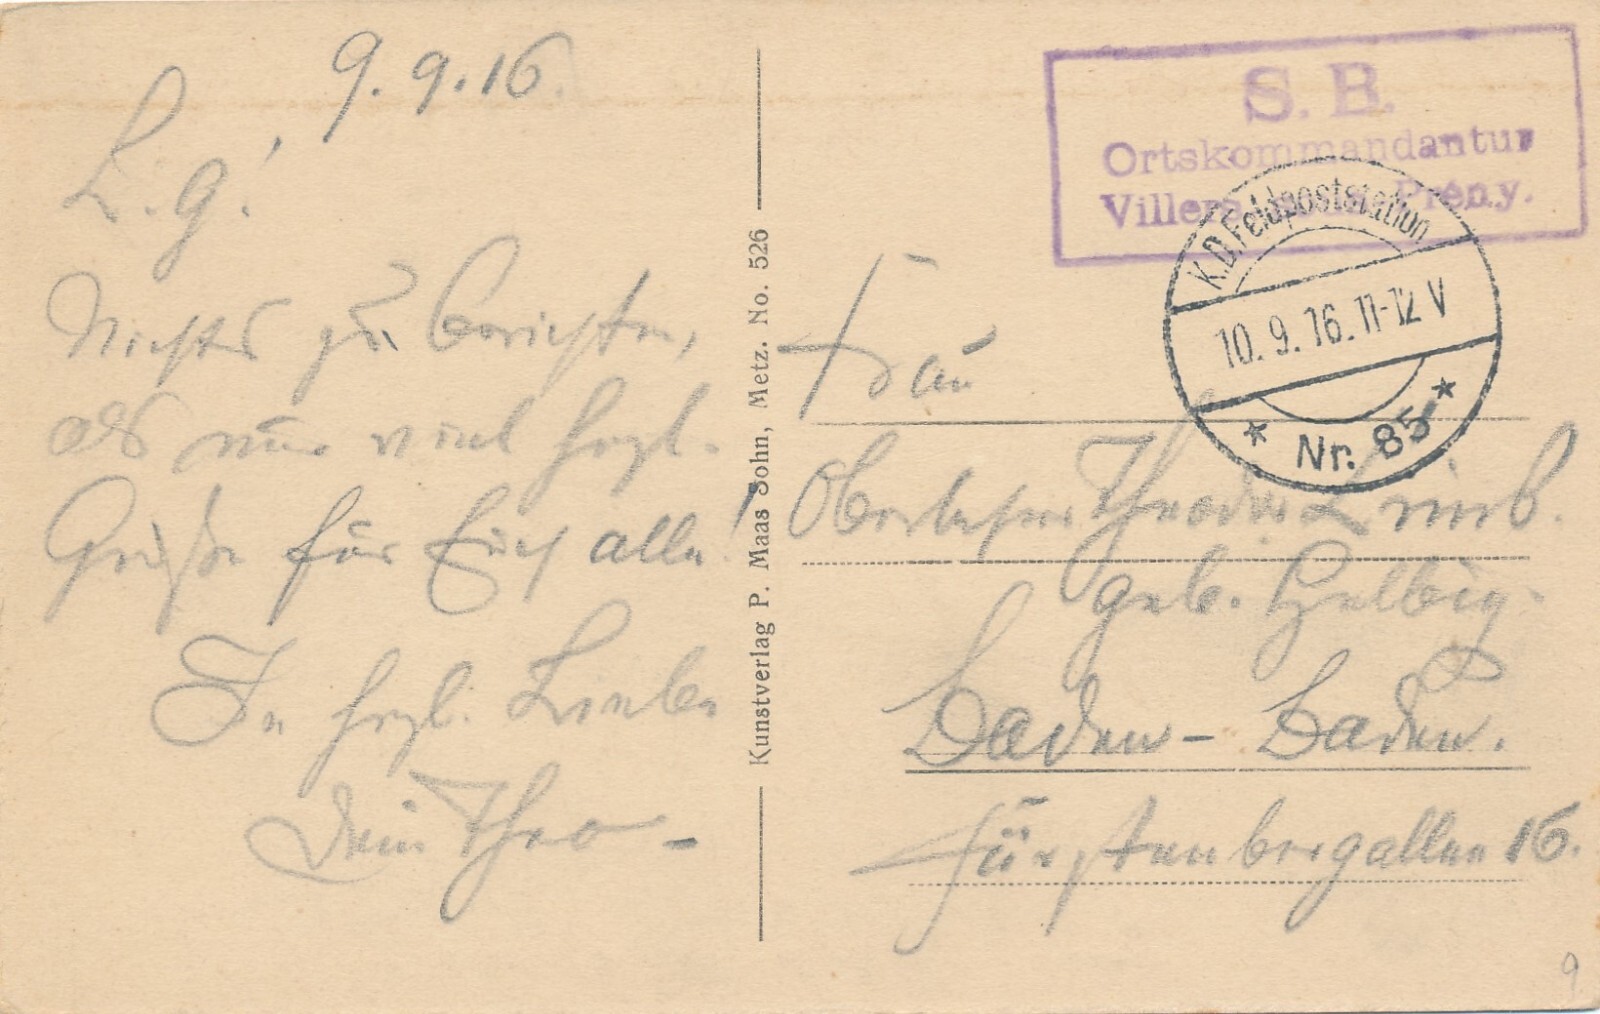 9.9.16.
L. g!
Nichts zu berichten,
als nur viel herzl.
Grüße für Euch alle!
In herzl. Liebe
Dein Theo –
Kunstverlag P. Maas Sohn, Metz. No. 526
S. B.
Ortskommandantur
Villers Prény.
K.D. Feldpoststation
10. 9. 16. 11-12 V
* Nr. 85 *
Frau
Theodor
geb. Helbig.
Baden-Baden.
Fürstenbergallee 16.
9